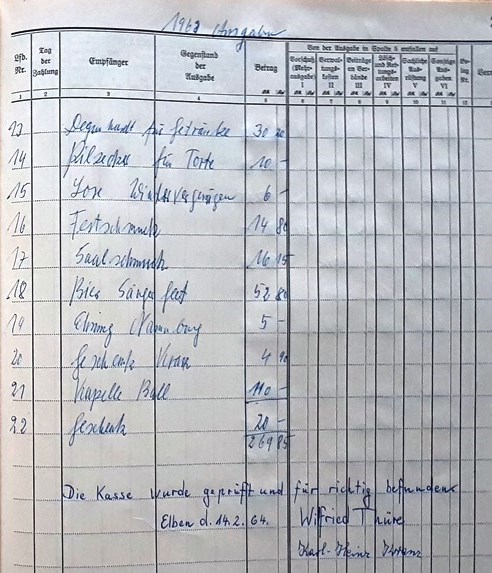 1963 Ausgaben
Von der Ausgabe in Spalte 5 entfallen auf
Lfd. Nr. Tag der Zahlung Empfänger Gegenstand der Ausgabe Betrag Vorschuß (Mehrausgabe) I Verwaltungskosten II Beiträge an Verbände III IV Sachliche Ausrüstung V Sonstige Ausgaben VI
1 2 3 4 5 6 7 8 9 10 11 12
13 für Getränke 30 20
14 für Torte 10 -
15 Lose Wintervergnügen 6 -
16 Festschmuck 14 80
17 Saalschmuck 16 15
18 Bier Sängerfest 52 80
19 Naumburg 5 -
20 Geschenk Kranz 4 90
21 Kapelle Ball 110 -
22 Geschenk 20 -
269 85
Die Kasse wurde geprüft und für richtig befunden
Elben d. 14.2.64. Wilfried Thüre
Karl-Heinz Kranz